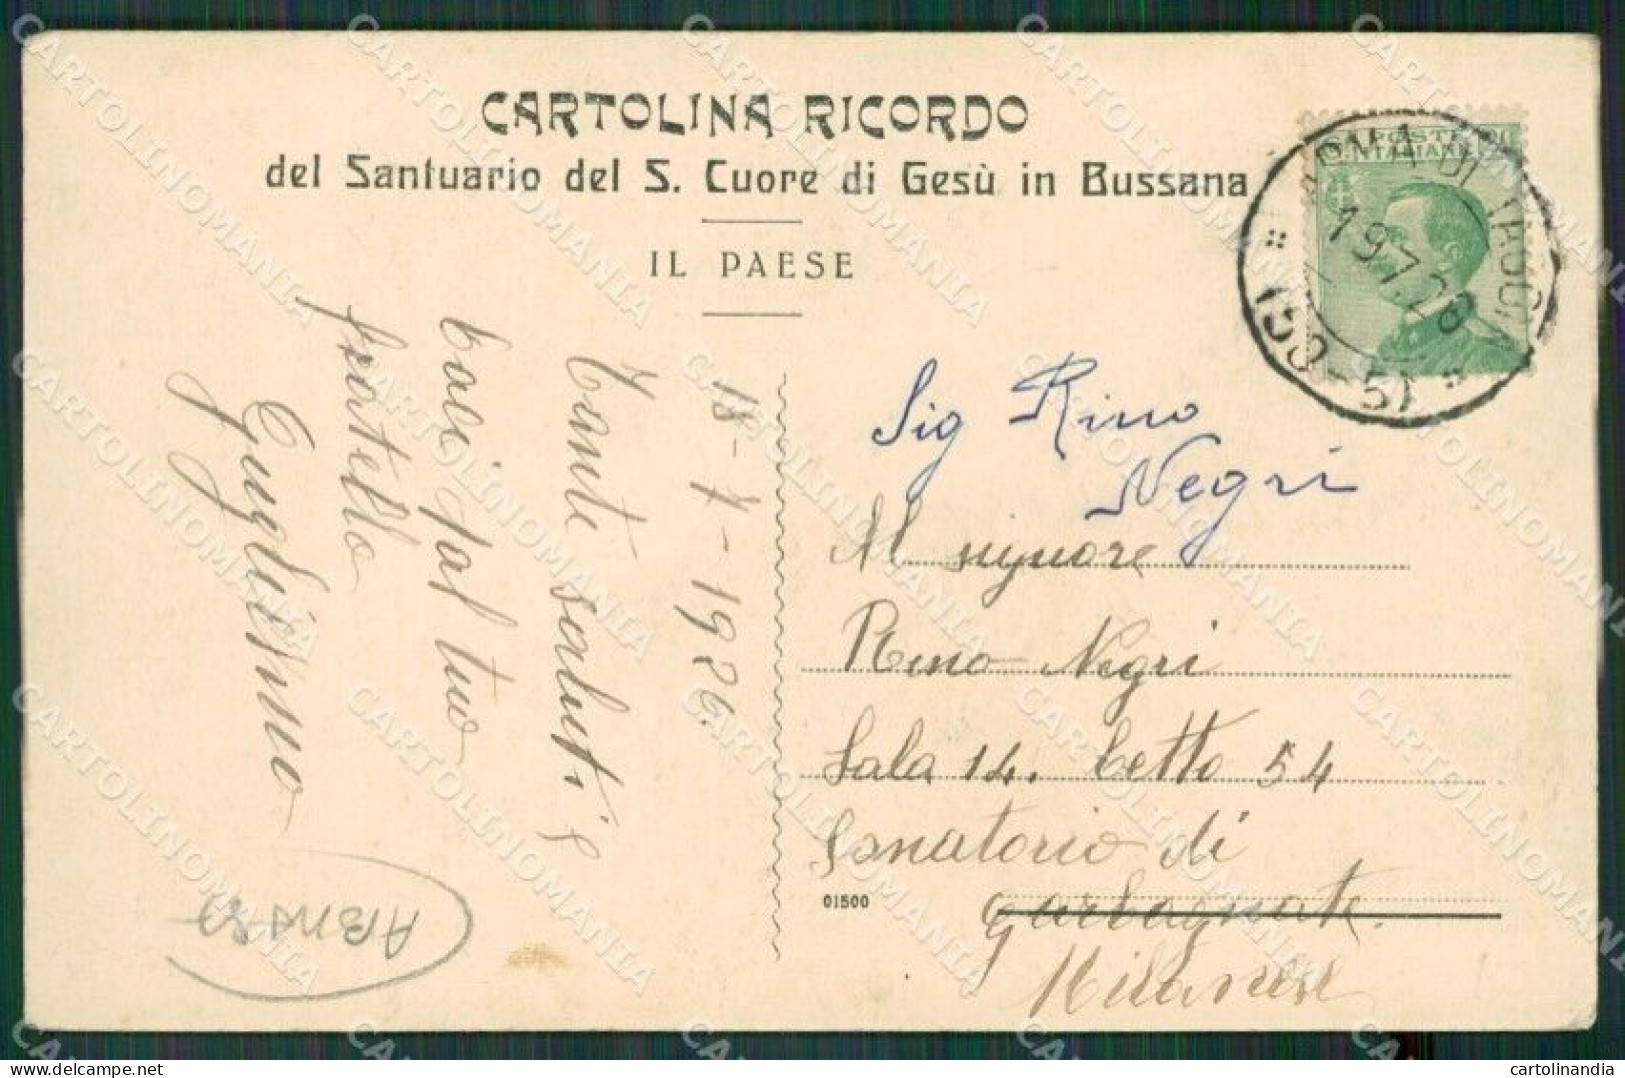 CARTOLINA RICORDO
del Santuario del S. Cuore di Gesù in Bussana
IL PAESE
POSTE
ITALIANE
20
19.7.26
18-7-1926.
Tante saluti e
baci dal tuo
fratello
Guglielmo
Sig Rino
Negri
Al signore
Rino Negri
Sala 14. Letto 54
Sanatorio di
Garbagnate.
Milanese
01500
CARTOLINOMANIA
cartolinandia